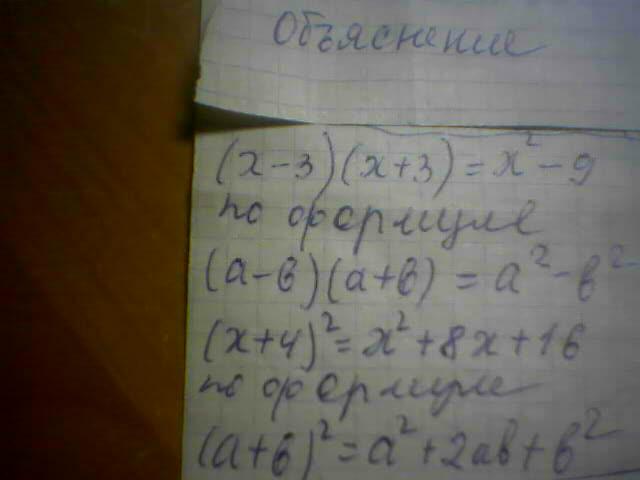 Объяснение
(x-3)(x+3)=x²-9
по формуле
(a-b)(a+b)=a²-b²
(x+4)²=x²+8x+16
по формуле
(a+b)²=a²+2ab+b²